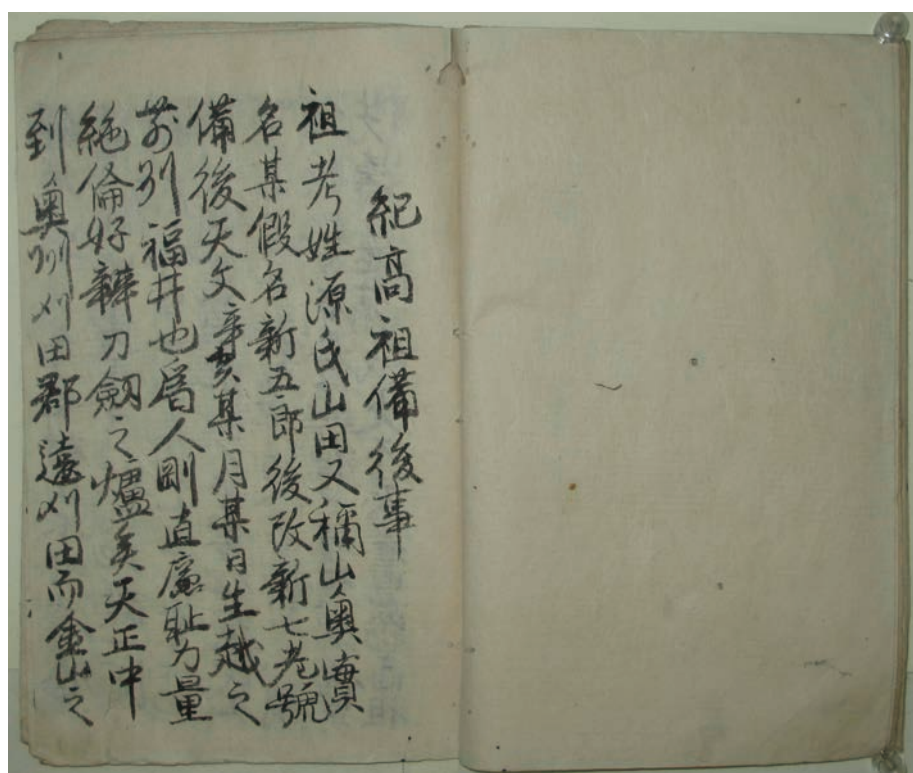 紀高祖備後事
祖考姓源氏山田又稱山奥實
名某假名新五郎後改新七老號
備後天文辛亥某月某日生越之
前州福井也爲人剛直廉耻力量
絶倫好辨刀劔之爐矣天正中
到奥州刈田郡遠刈田而金山之